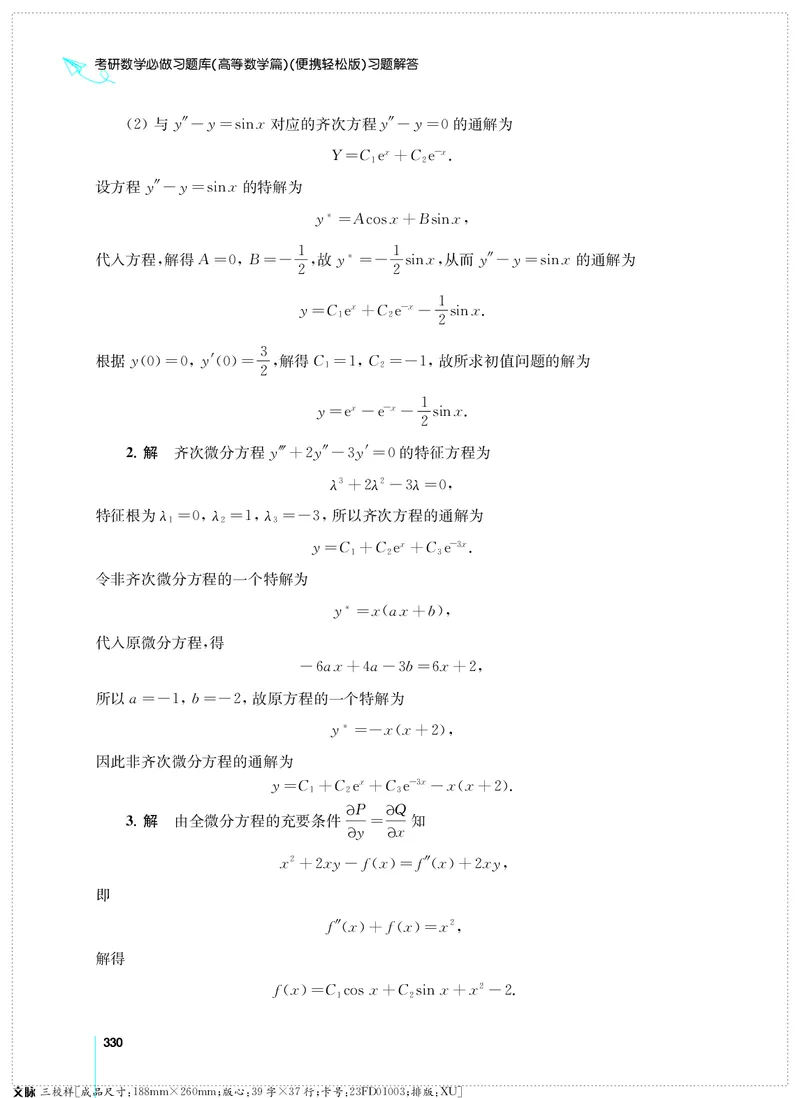 考研数学必做习题库(高等数学篇)(便携轻松版)习题解答
(2) 与 y″－y＝sinx 对应的齐次方程 y″－y＝0 的通解为
Y＝C₁eˣ＋C₂e⁻ˣ.
设方程 y″－y＝sinx 的特解为
y*＝Acosx＋Bsinx,
代入方程,解得 A＝0, B＝－1/2,故 y*＝－1/2 sinx,从而 y″－y＝sinx 的通解为
y＝C₁eˣ＋C₂e⁻ˣ－1/2 sinx.
根据 y(0)＝0, y′(0)＝3/2,解得 C₁＝1, C₂＝－1, 故所求初值问题的解为
y＝eˣ－e⁻ˣ－1/2 sinx.
2. 解 齐次微分方程 y‴＋2y″－3y′＝0 的特征方程为
λ³＋2λ²－3λ＝0,
特征根为 λ₁＝0, λ₂＝1, λ₃＝－3, 所以齐次方程的通解为
y＝C₁＋C₂eˣ＋C₃e⁻³ˣ.
令非齐次微分方程的一个特解为
y*＝x(ax＋b),
代入原微分方程,得
－6ax＋4a－3b＝6x＋2,
所以 a＝－1, b＝－2, 故原方程的一个特解为
y*＝－x(x＋2),
因此非齐次微分方程的通解为
y＝C₁＋C₂eˣ＋C₃e⁻³ˣ－x(x＋2).
3. 解 由全微分方程的充要条件 ∂P/∂y＝∂Q/∂x 知
x²＋2xy－f(x)＝f″(x)＋2xy,
即
f″(x)＋f(x)＝x²,
解得
f(x)＝C₁cos x＋C₂sin x＋x²－2.
330
文脉 三校样[成品尺寸:188mm×260mm;版心:39 字×37 行;卡号:23FD01003;排版:XU]